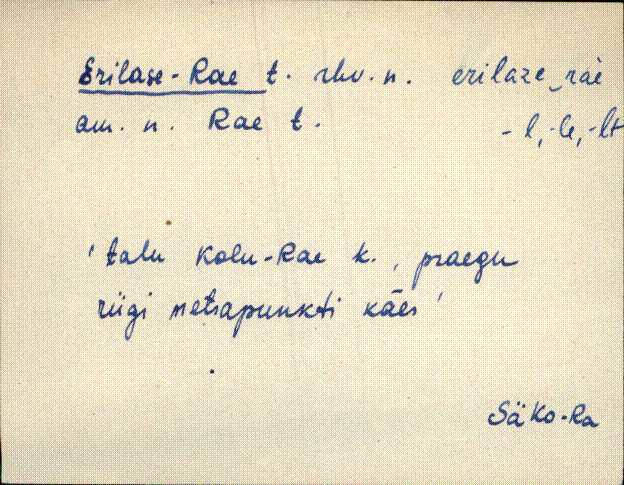 Erilase-Rae t. rhv. n. erilaze‿ràe
am. n. Rae t. -l, -le, -lt
'talu Kolu-Rae k., praegu
riigi metsapunkti käes'
SäKo-Ra